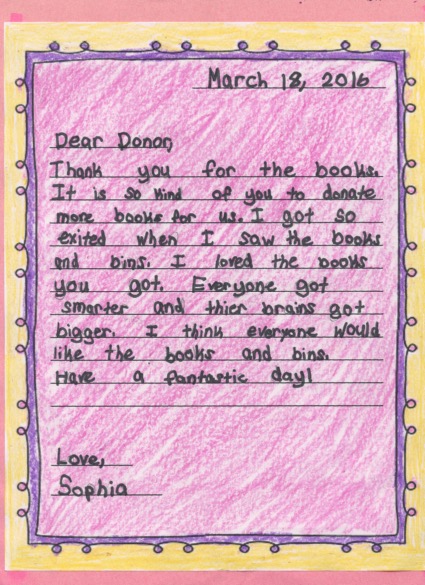 March 18, 2016
Dear Donor,
Thank you for the books.
It is so kind of you to donate
more books for us. I got so
exited when I saw the books
and bins. I loved the books
you got. Everyone got
smarter and thier brains got
bigger. I think everyone would
like the books and bins.
Have a fantastic day!
Love,
Sophia